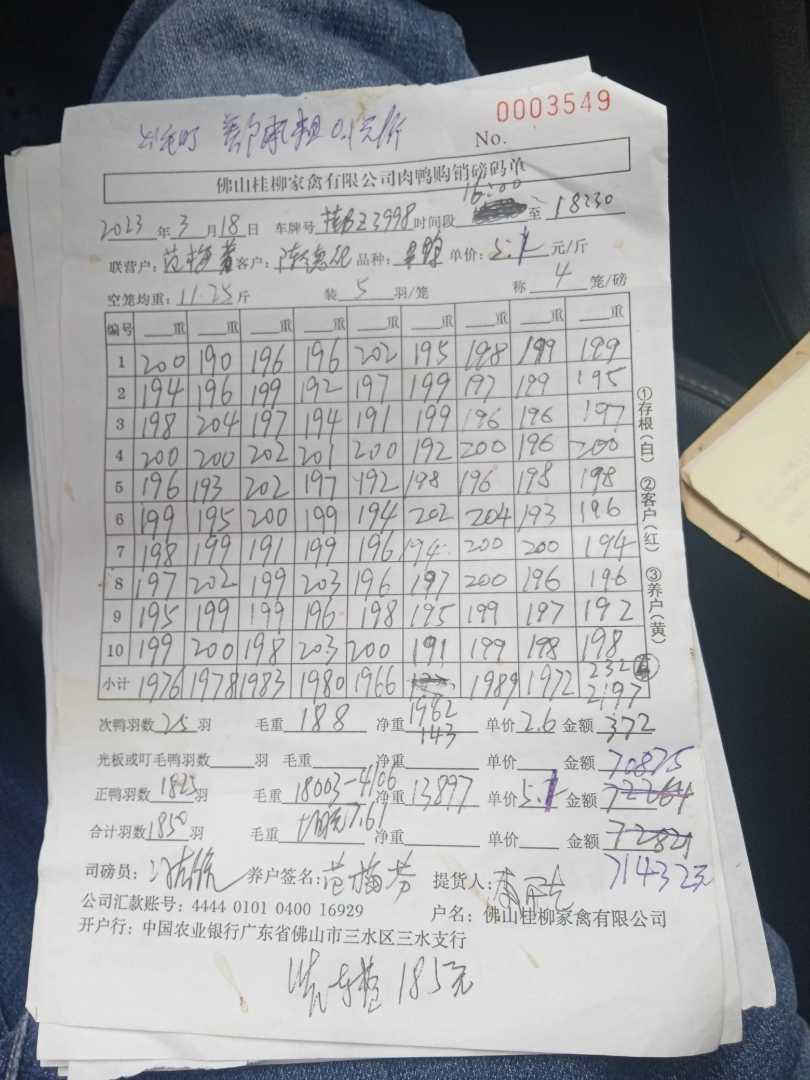 0003549
No.
0.1元/斤
佛山桂柳家禽有限公司肉鸭购销磅码单
16:00
2023年3月18日 车牌号 Z3998 时间段 至 18:30
联营户: 范梅芳 客户: 陈德化 品种: 单价: 5.1 元/斤
空笼均重: 11.25斤 装 5 羽/笼 称 4 笼/磅
编号 重 重 重 重 重 重 重 重 重
1 200 190 196 196 202 195 198 199 199
2 194 196 199 192 197 199 197 199 195
3 198 204 197 194 191 199 196 196 197
4 200 200 202 201 200 192 200 196 200
5 196 193 202 197 192 198 196 198 198
6 199 195 200 199 194 202 204 193 196
7 198 199 191 199 196 194 200 200 194
8 197 202 199 203 196 197 200 196 196
9 195 199 199 196 198 195 199 197 192
10 199 200 198 203 200 191 199 198 198
小计 1976 1978 1983 1980 1966 1962 1989 1972 232 2197
次鸭羽数 25 羽 毛重 188 净重 143 单价 2.6 金额 372
光板或叮毛鸭羽数 羽 毛重 净重 单价 金额 70875
正鸭羽数 1825 羽 毛重 18003-4106 净重 13897 单价 5.1 金额 72264
合计羽数 1850 羽 毛重 7.61 净重 单价 金额 72821
71432元
司磅员: 养户签名: 范梅芳 提货人:
公司汇款账号: 4444 0101 0400 16929 户名: 佛山桂柳家禽有限公司
开户行: 中国农业银行广东省佛山市三水区三水支行
185元
①存根(白) ②客户(红) ③养户(黄)